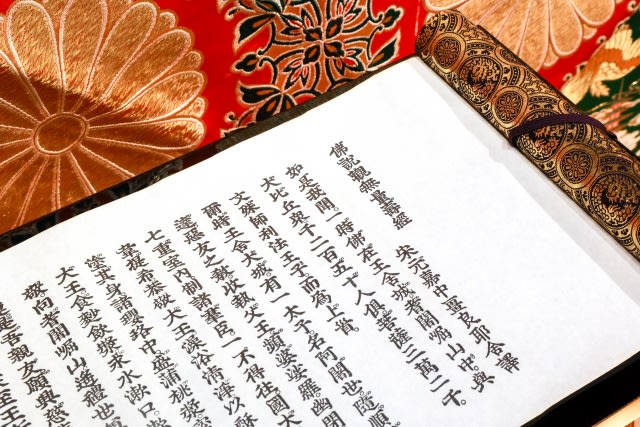 佛説觀無量壽經　宋元嘉中畺良耶舍譯
如是我聞一時佛在王舍城耆闍崛山中與
大比丘衆千二百五十人俱菩薩三萬二千
文殊師利法王子而爲上首
爾時王舍大城有一太子名阿闍世隨順
達惡友之敎收執父王頻婆娑羅幽閉
七重室内制諸羣臣一不得往國大
韋提希恭敬大王澡浴清淨以酥
塗其身諸瓔珞中盛蒲桃漿
大王食麨飲漿求水漱口
敬向耆闍崛山遙禮世
是吾親友願興慈
至王